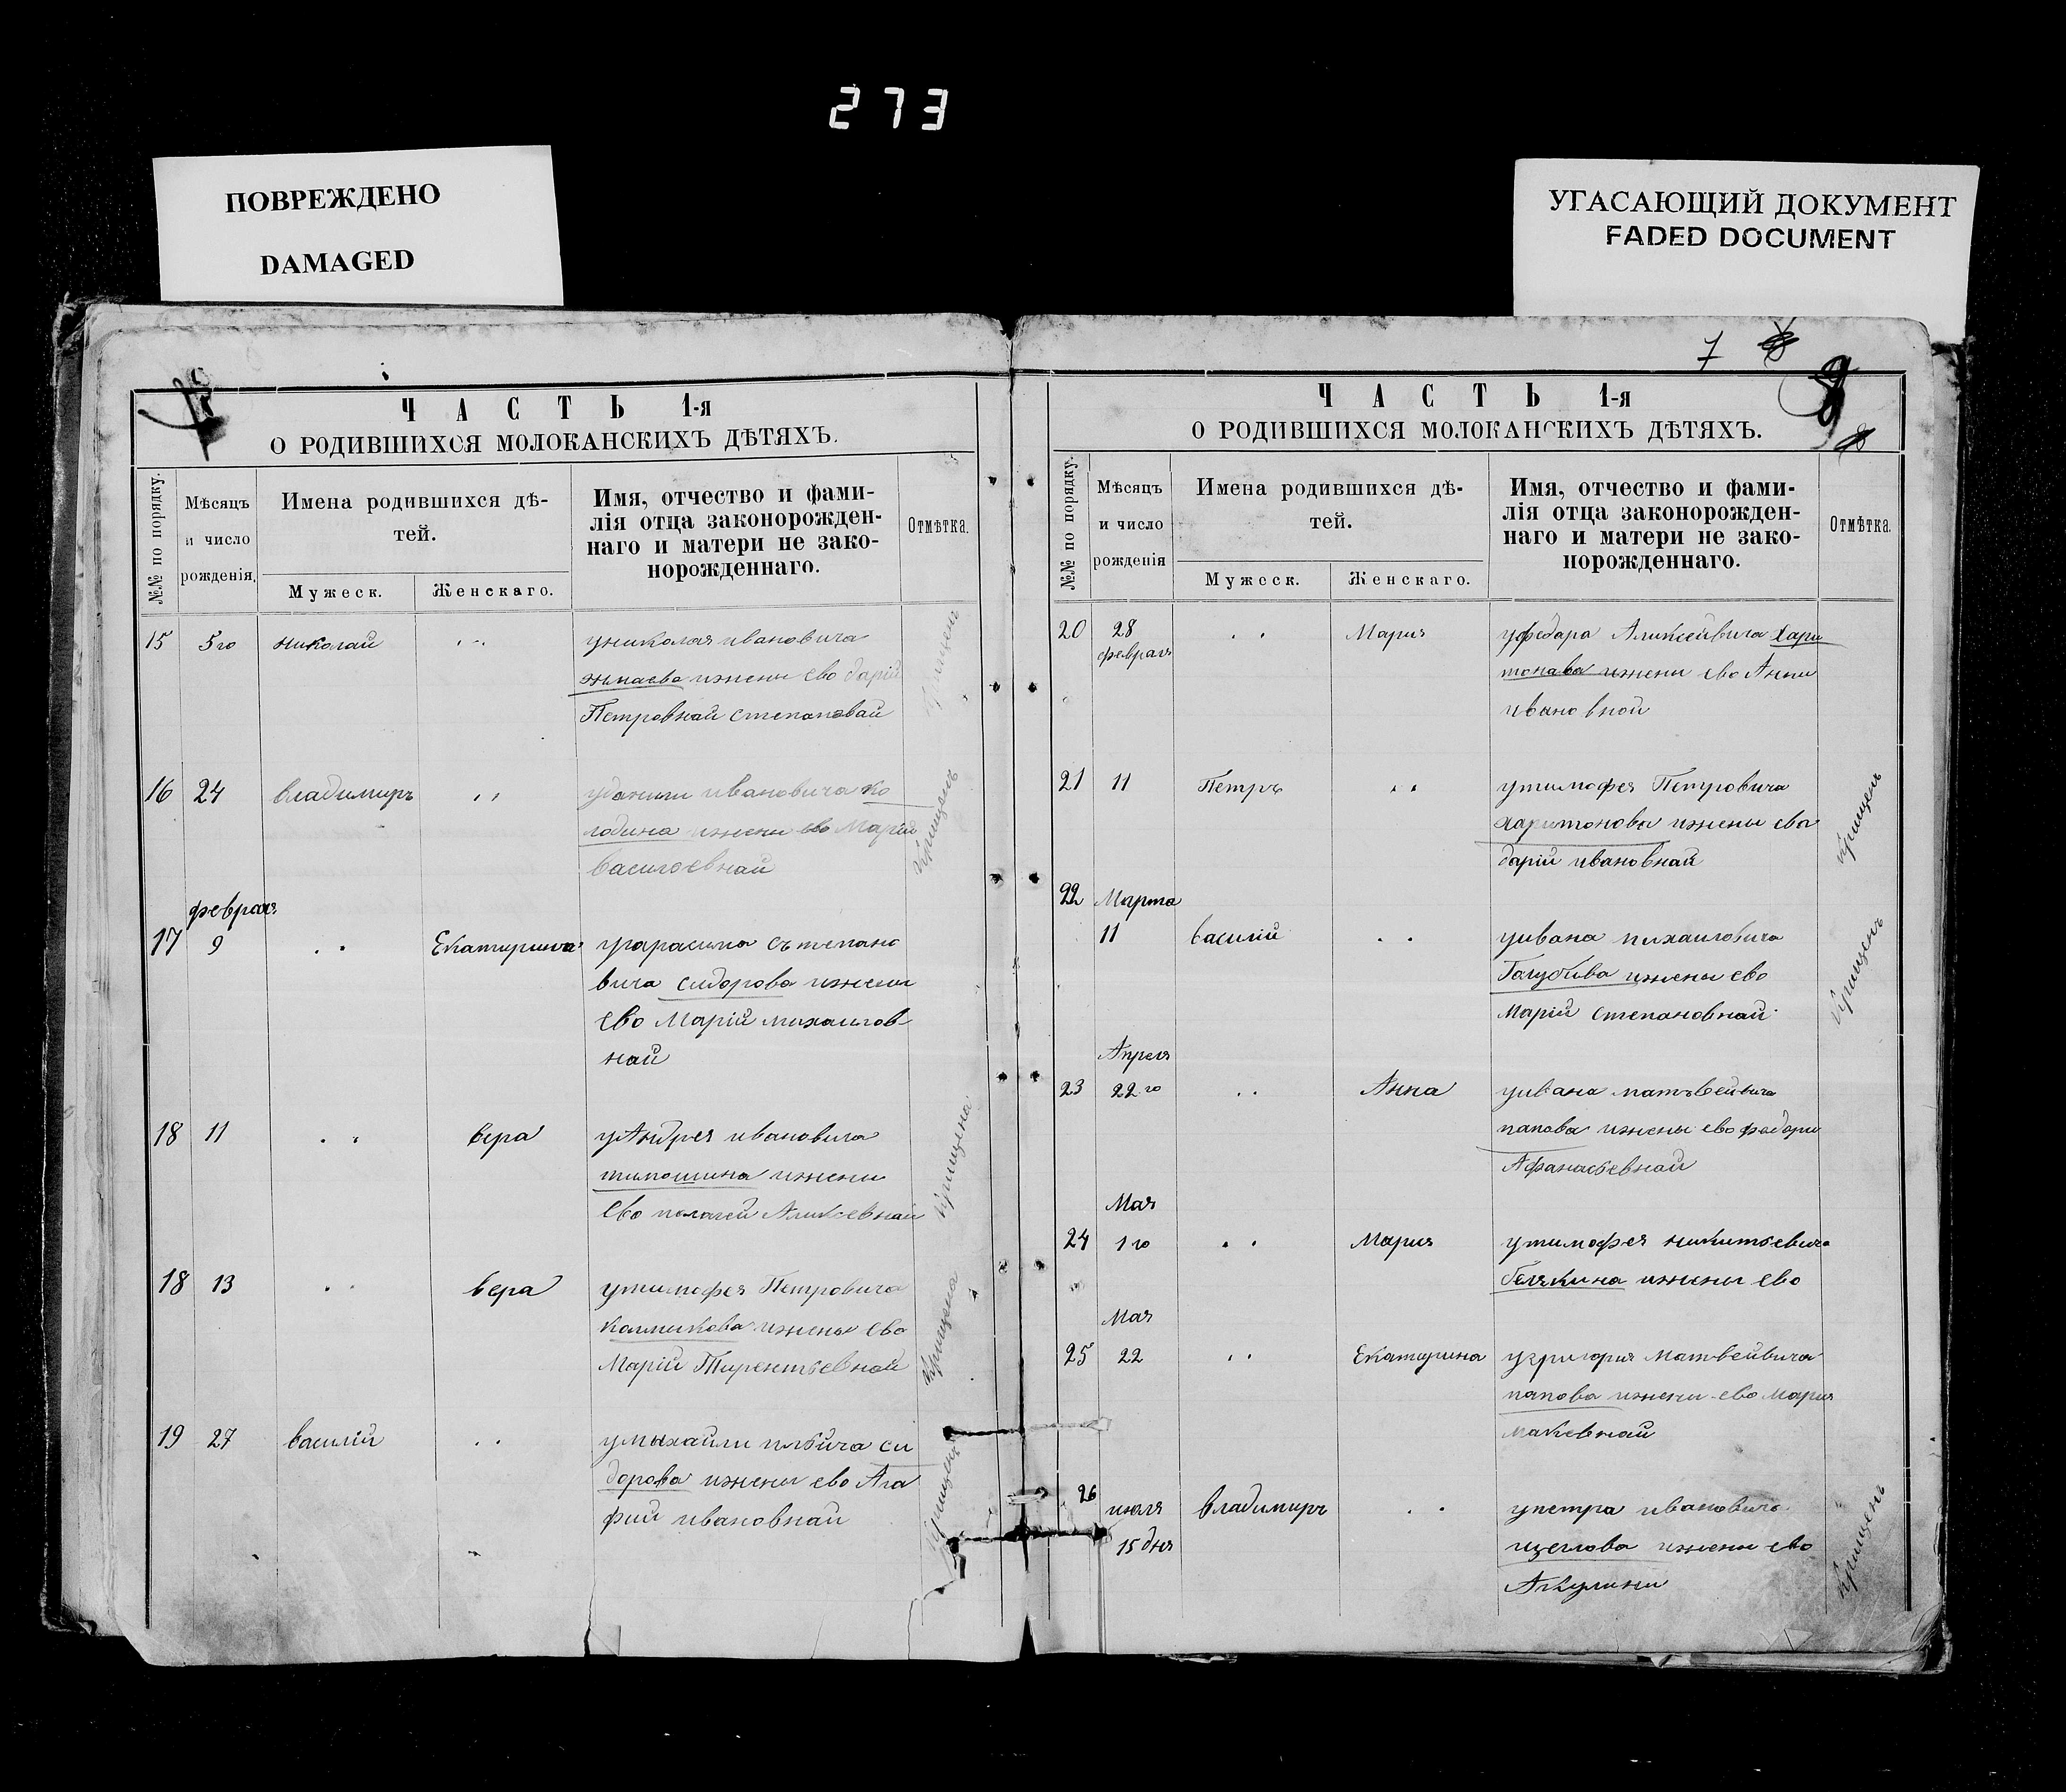 273
ПОВРЕЖДЕНО
DAMAGED
УГАСАЮЩИЙ ДОКУМЕНТ
FADED DOCUMENT
ЧАСТЬ 1-я
О РОДИВШИХСЯ МОЛОКАНСКИХЪ ДѢТЯХЪ.
№№ по порядку.
Мѣсяцъ
и число
рожденія.
Имена родившихся дѣ-
тей.
Мужеск.
Женскаго.
Имя, отчество и фами-
лія отца законорожден-
наго и матери не зако-
норожденнаго.
Отмѣтка.
15 5го николай уникалая ивановича
ижены ево дарій
Петровнай степановай
крищенъ
16 24 владимиръ уданили ивановича ко
лодина ижены ево Марій
васильевнай
крищенъ
февраля
17 9 Екатирина угарасима съ тепано
вича сидорова ижены
ево Марій михаилов
най
18 11 вера уАндрея ивановича
тимошина ижены
ево палагеи Аликсевнай
крищена
18 13 вера утимофея Петровича
калмикова ижены ево
Марій Тирентьевнай
крищена
19 27 василій умыхайли илвича си
дорова ижены ево Ага
фий ивановнай
крищенъ
7 8
ЧАСТЬ 1-я
О РОДИВШИХСЯ МОЛОКАНСКИХЪ ДѢТЯХЪ.
№№ по порядку.
Мѣсяцъ
и число
рожденія
Имена родившихся дѣ-
тей.
Мужеск.
Женскаго.
Имя, отчество и фами-
лія отца законорожден-
наго и матери не зако-
норожденнаго.
Отмѣтка.
20 28 Мария уфедара Аликсейвича Хари
февраля
тонава ижени ево Анни
ивановной
21 11 Петръ утимофея Петровича
харитонова ижены ево
дарій ивановнай
крищенъ
22 Марта
11 василій уивана михаиловича
Галубива ижены ево
Марій степановнай
крищенъ
Апреля
23 22го Анна уивана матвейвича
папова ижены ево федори
Афанасьевнай
Мая
24 1го Мария утимофея никитьевича
белякина ижены ево
Мая
25 22 Екатирина угригория Матвейвича
папова ижены ево Мария
макевнай
26
июля владимиръ упетра ивановича
15 дня щеглова ижени ево
Акулини
крищенъ